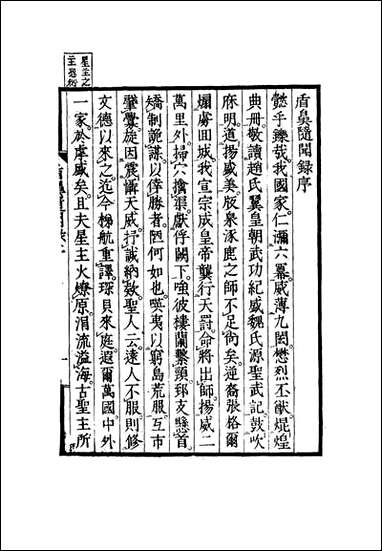 盾鼻隨聞錄序
懿乎鑠哉我國家仁瀰六幕威薄九閎懋烈丕猷焜煌
典冊敬讀趙氏翼皇朝武功紀盛魏氏源聖武記鼓吹
庥明道揚威美版泉涿鹿之師不足尚矣逆裔張格爾
煽虜回城我宣宗成皇帝龔行天罰命將出師揚威二
萬里外掃穴擒渠獻俘闕下強彼樓蘭繫頸郅支懸首
矯制詭謀以倖勝者何如也㖦夷以窮島荒服互市
肇釁旋因震懾天威抒誠納效聖人云遠人不服則修
文德以來之迄今梯航重譯琛貝來庭遐邇萬國中外
一家於虖威矣且夫星主火燎原涓流溢海古聖主所
星主之
主恐衍